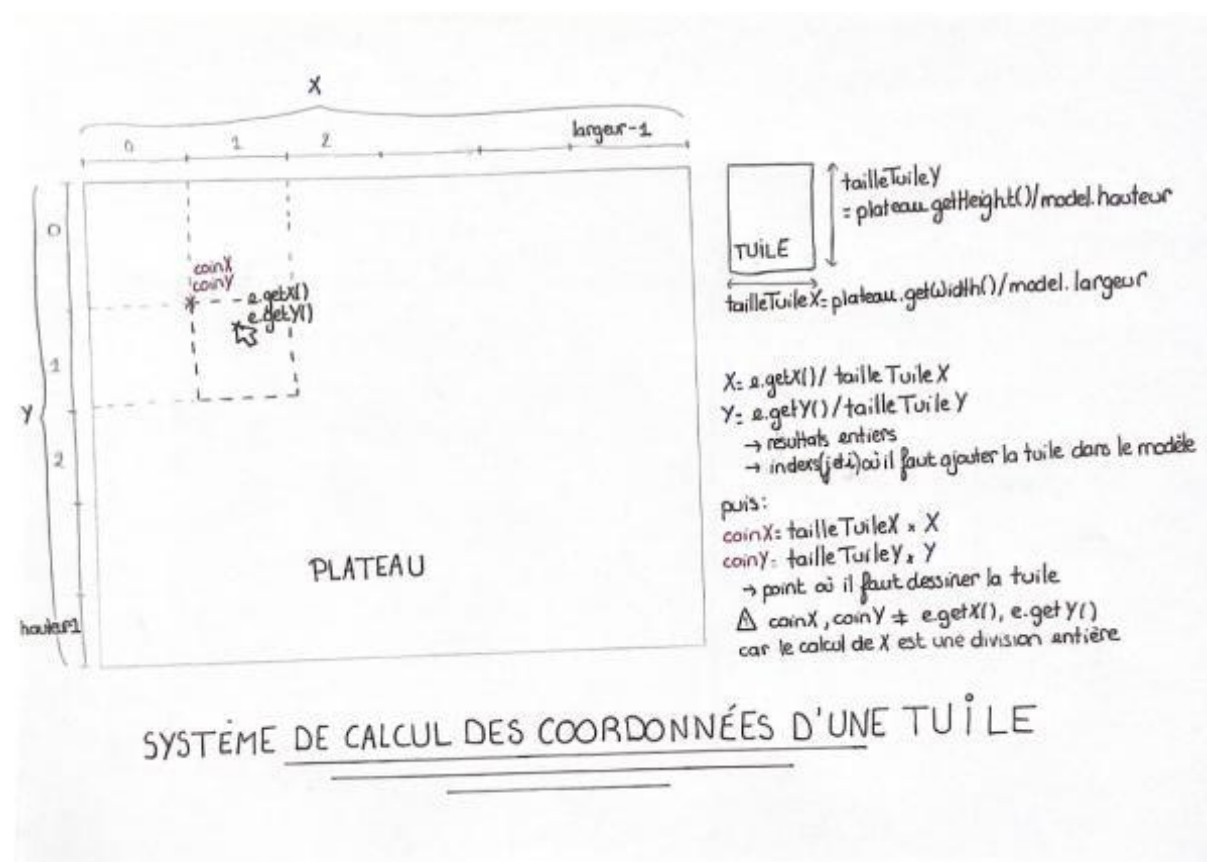 X
0 1 2 largeur-1
Y
0
1
2
hauteur-1
coinX
coinY
e.getX()
e.getY()
PLATEAU
TUILE
tailleTuileY
= plateau.getHeight()/model.hauteur
tailleTuileX= plateau.getWidth()/model.largeur
X= e.getX()/ tailleTuileX
Y= e.getY()/tailleTuileY
→ résultats entiers
→ indexs(j et i) où il faut ajouter la tuile dans le modèle
puis:
coinX= tailleTuileX × X
coinY= tailleTuileY × Y
→ point où il faut dessiner la tuile
⚠ coinX, coinY ≠ e.getX(), e.getY()
car le calcul de X est une division entière
SYSTÈME DE CALCUL DES COORDONNÉES D'UNE TUILE